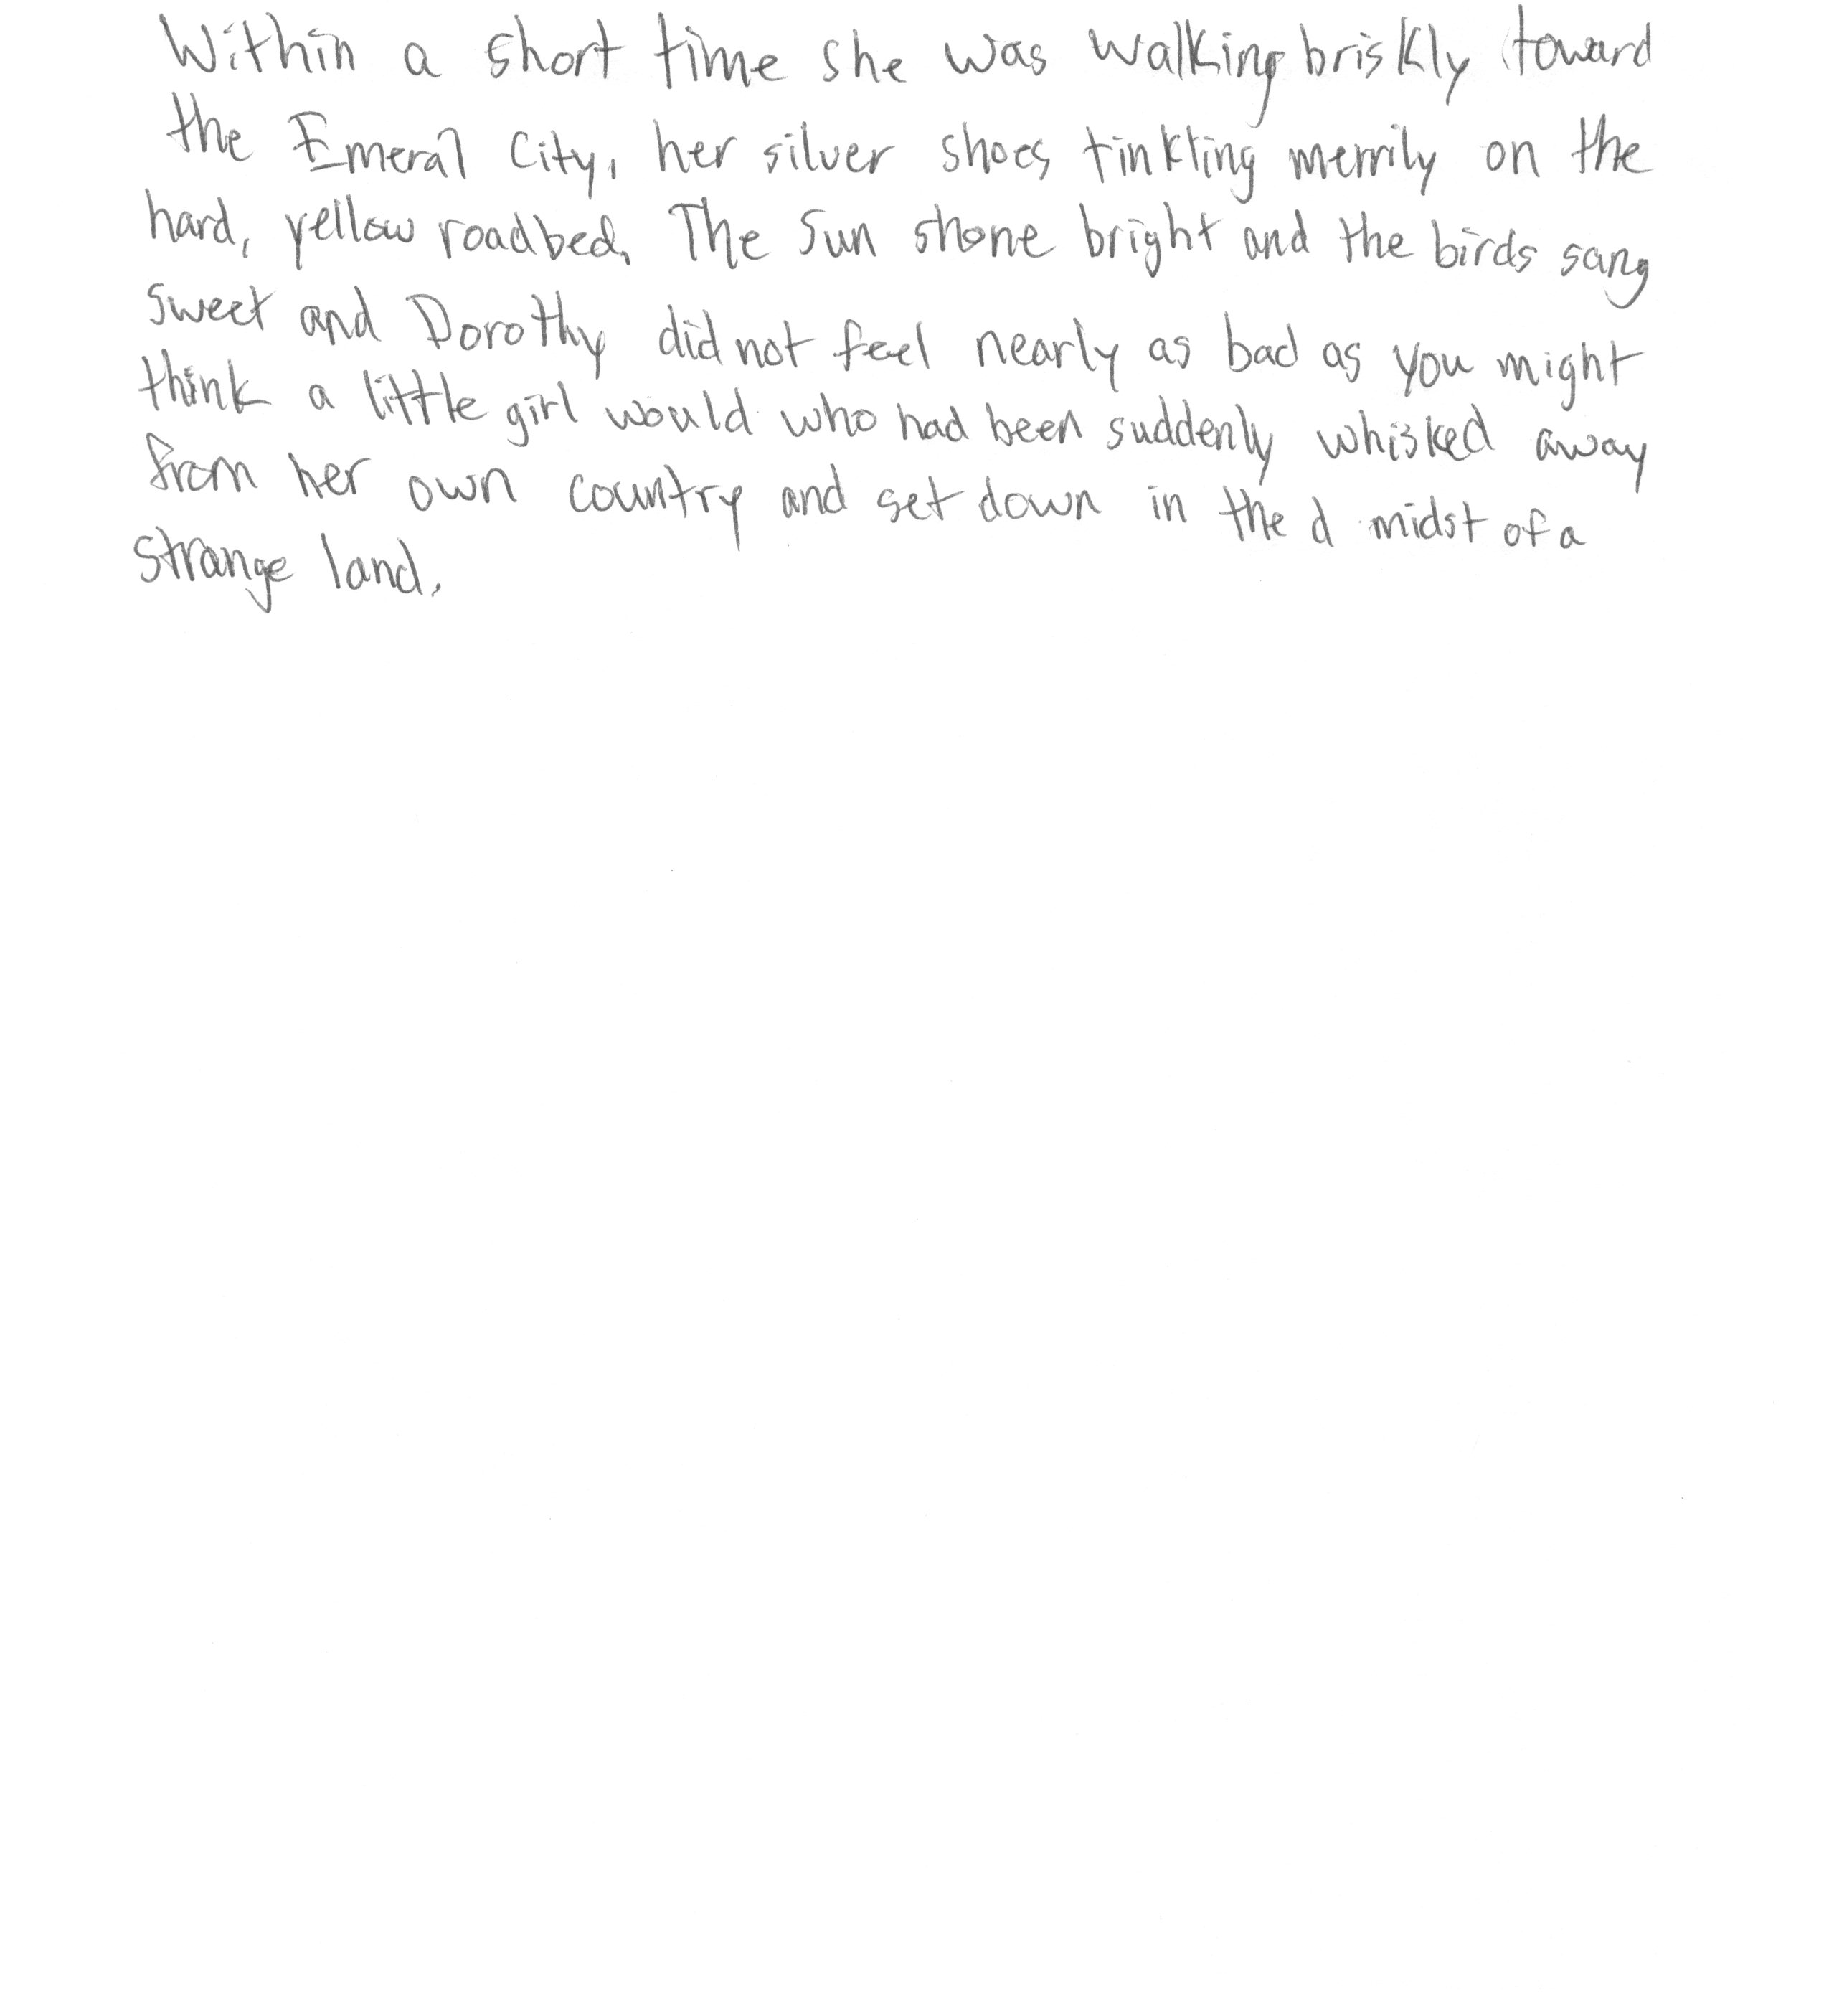 Within a short time she was walking briskly toward
the Emeral City, her silver shoes tinkling merrily on the
hard, yellow roadbed. The Sun shone bright and the birds sang
sweet and Dorothy did not feel nearly as bad as you might
think a little girl would who had been suddenly whisked away
from her own country and set down in the d midst of a
strange land.